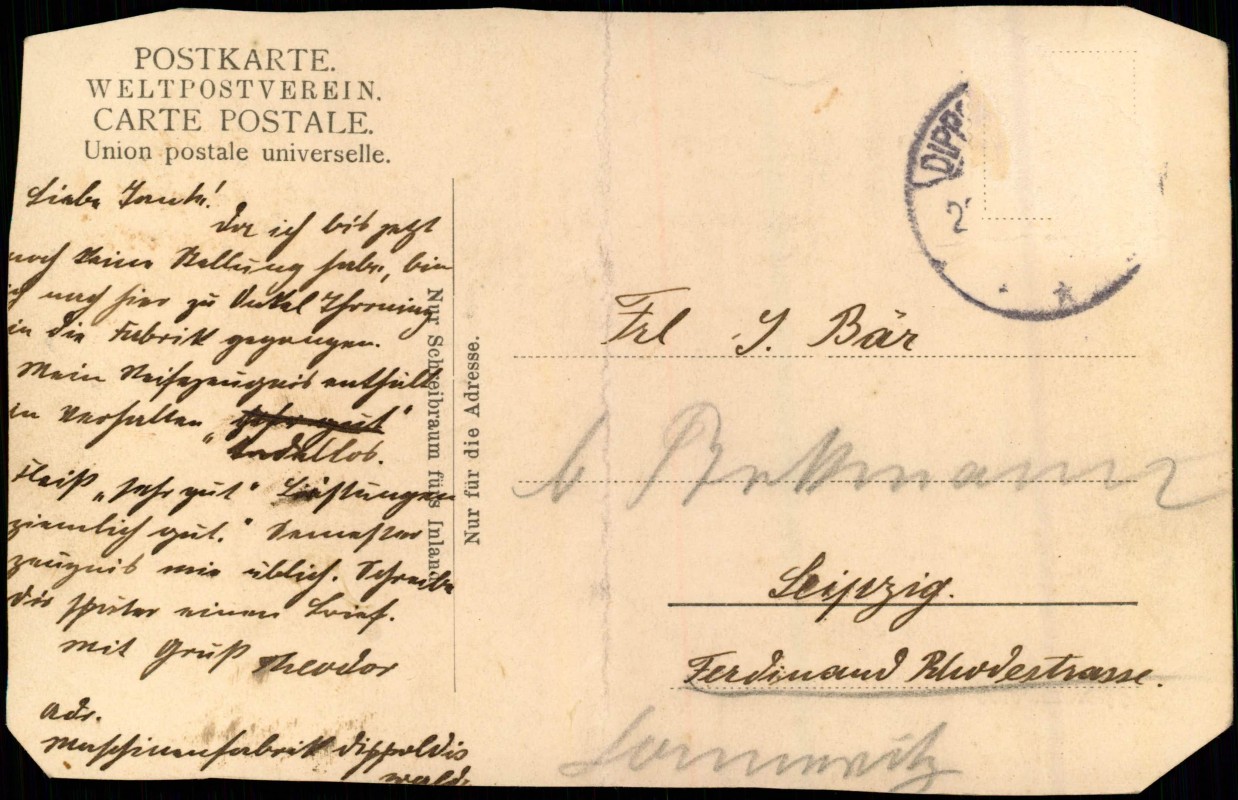 POSTKARTE.
WELTPOSTVEREIN.
CARTE POSTALE.
Union postale universelle.
Liebe Tante!
Da ich bis jetzt
noch keine Stellung habe, bin
ich nach hier zu Onkel
in die Fabrik gegangen.
Mein Reifezeugnis enthält
in Verhalten „sehr gut“
tadellos.
Fleiß „sehr gut“ Leistungen
ziemlich gut.“ Semester
zeugnis wie üblich. Schreibe
dir später einen Brief.
mit Gruß Theodor
Adr.
Maschinenfabrik Dippoldis
walde
Nur Schreibraum fürs Inland
Nur für die Adresse.
DIPP
2
Frl J. Bär
b
Leipzig.
Ferdinand Rhodestrasse.